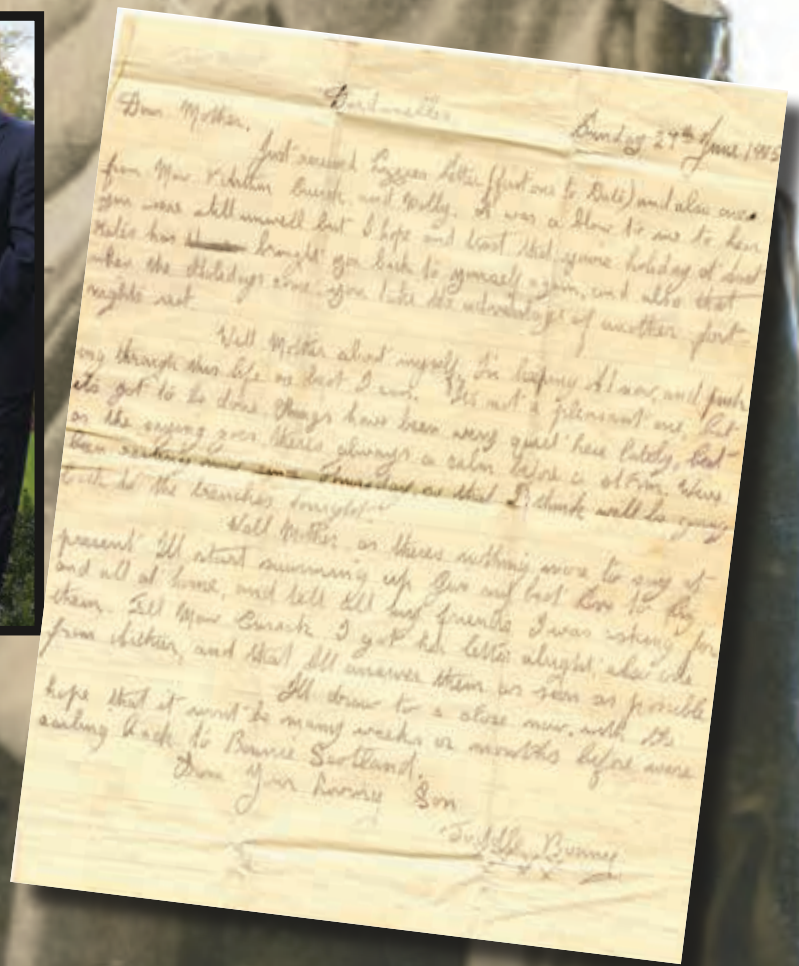 Dardanelles
Dear Mother, Sunday 27th June 1915
Just received Lizzies letter (first one to Date) and also one
from Maw and Molly. It was a blow to me to hear
you were still unwell but I hope and trust that your holiday at
has brought you back to yourself again, and also that
when the Holidays come you take the advantage of another fort-
nights rest.
Well Mother about myself, I'm keeping A1 now, and push
ing through this life as best I can. Its not a pleasant one, but
its got to be done. Things have been very quiet here lately, but
as the saying goes theres always a calm before a storm. Weve
been resting now Thursday, so that I think we'll be going
back to the trenches tonight.
Well Mother as theres nothing more to say at
present I'll start summing up. Give my best love to
and all at home, and tell all my friends I was asking for
them. Tell Maw Cusack I got her letter alright also one
from and that I'll answer them as soon as possible
I'll draw to a close now, with the
hope that it wont be many weeks or months before were
sailing back to Bonnie Scotland.
From Your Loving Son